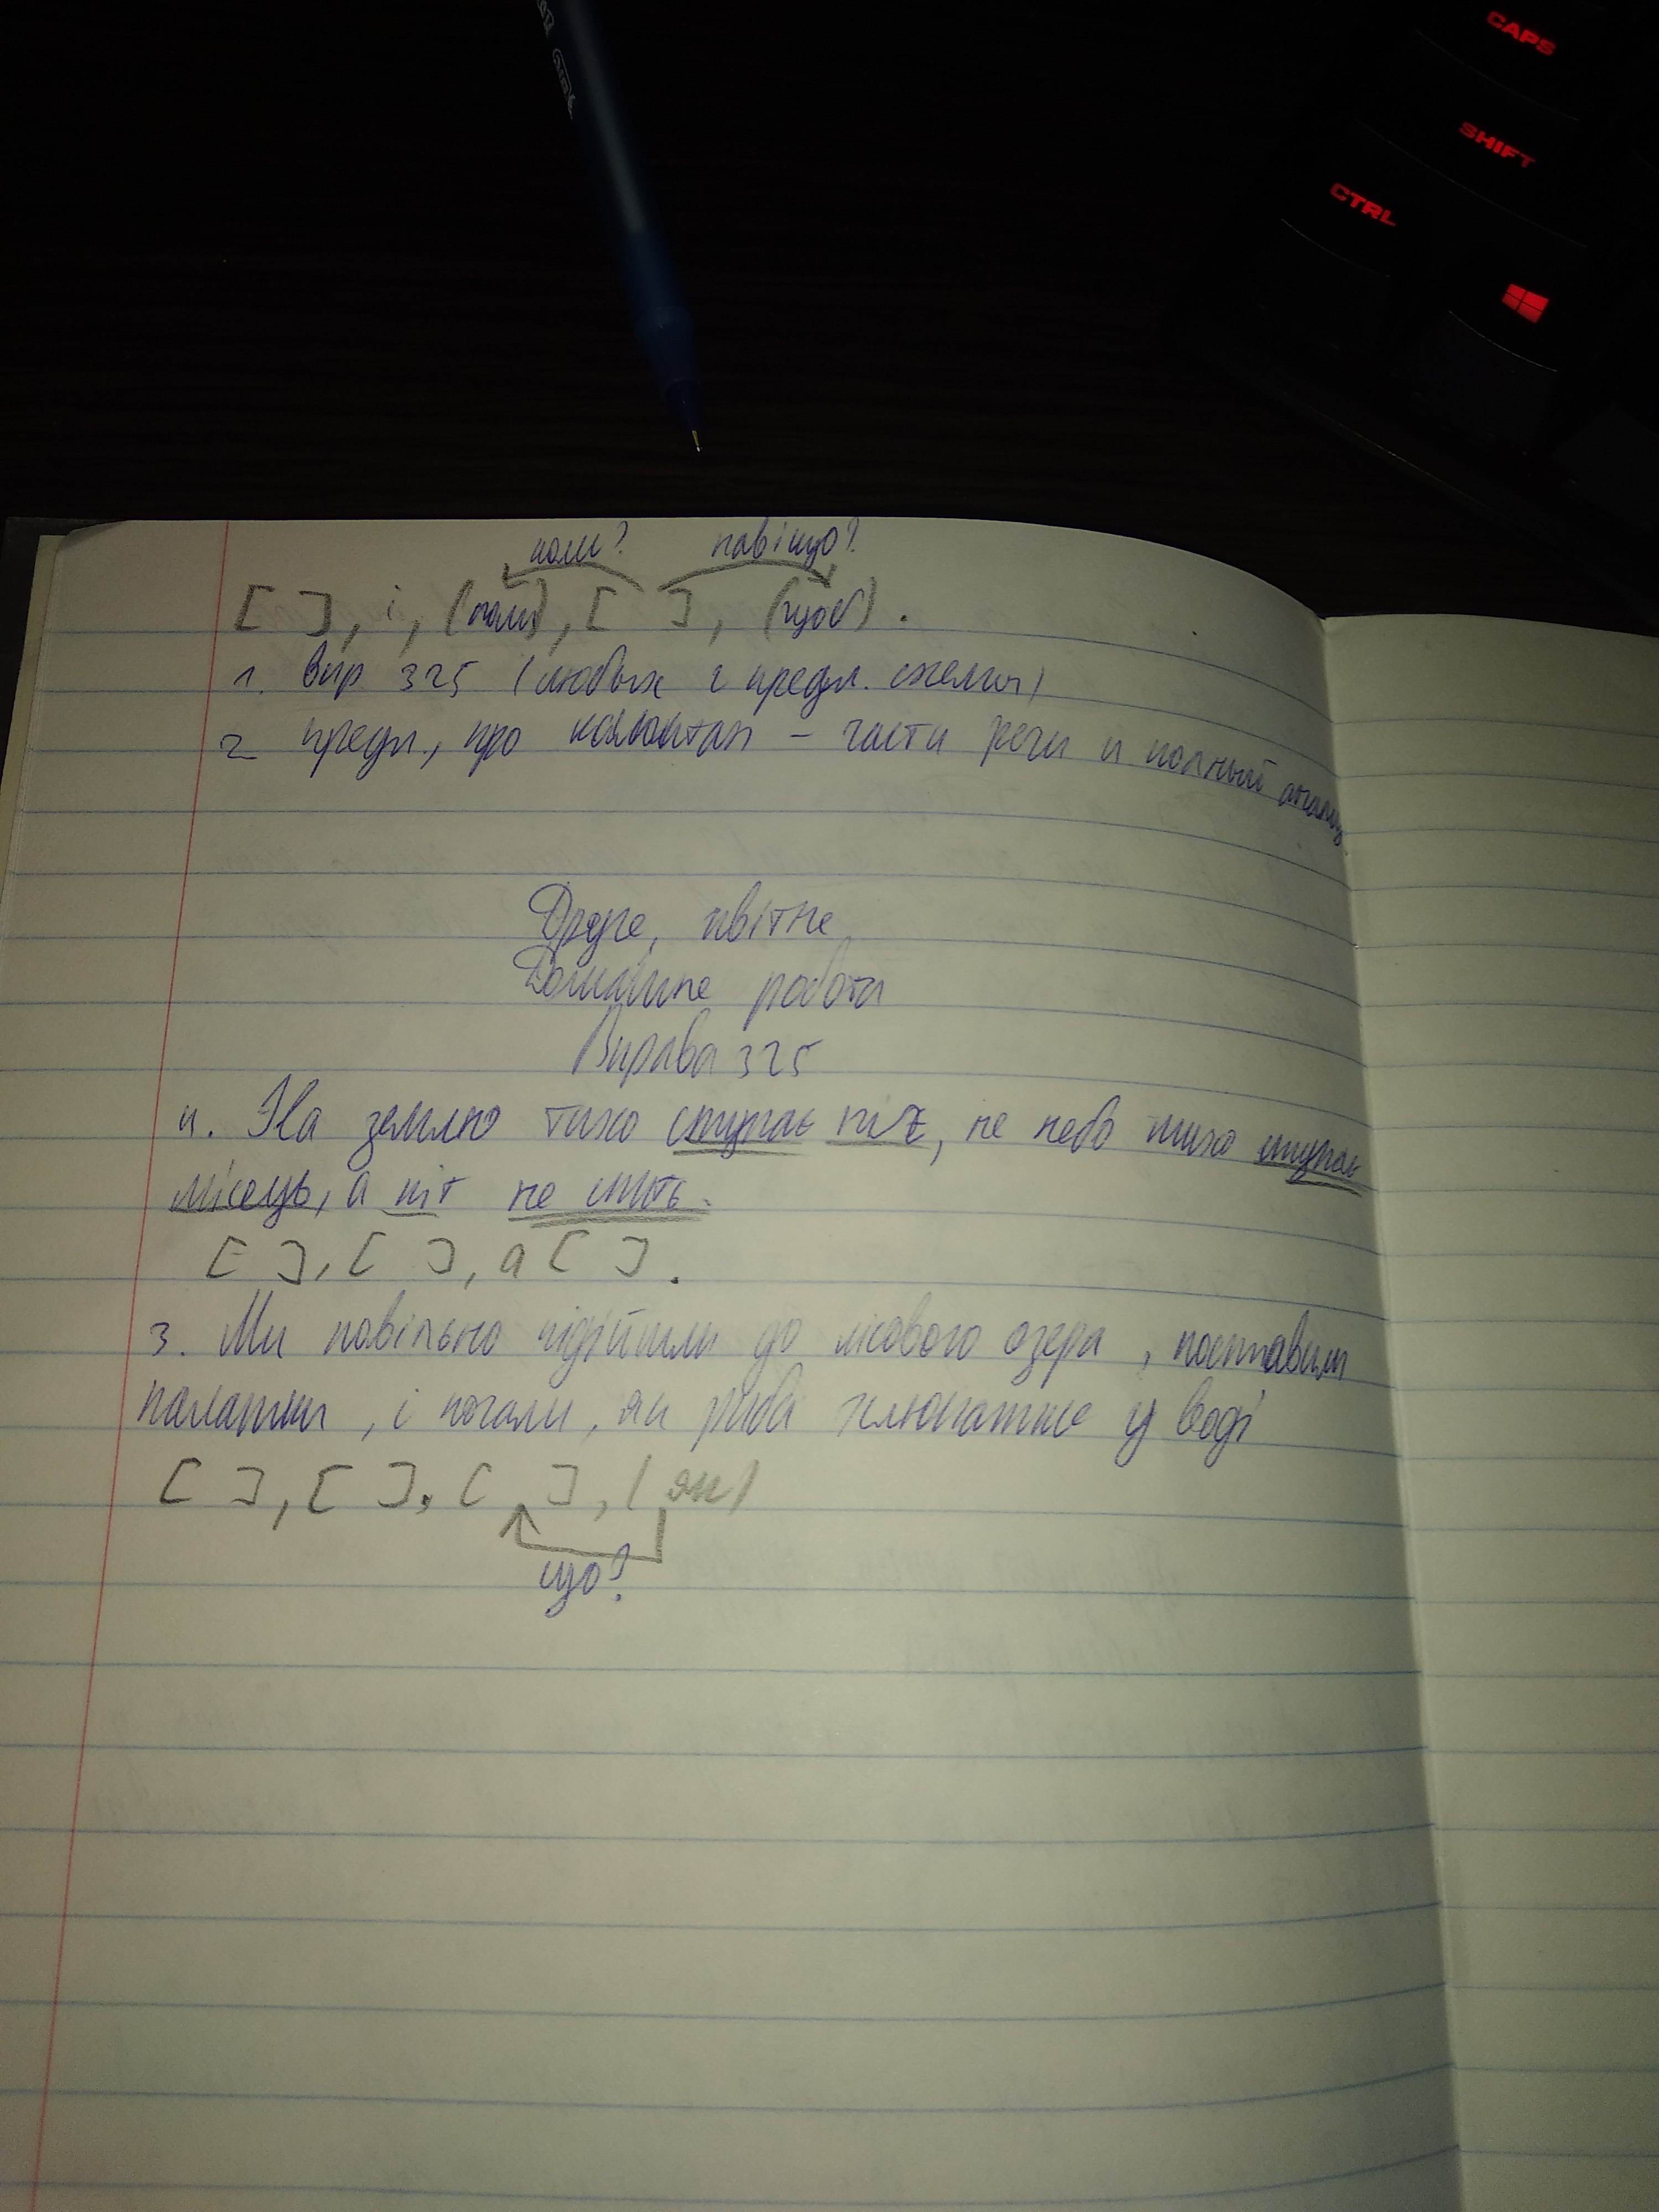 CAPS
SHIFT
CTRL
коли? навіщо?
[ ], і, (коли), [ ], (щоб).
1. Впр 325 (любых 2 предл. схемы)
2 предл., про капитан - части речи и полный анализ
Друге, квітне
Домашнє робота
Вправа 325
4. На землю тихо ступає ніч, не небо тихо ступає
місяць, а кіт не спить.
[ ], [ ], а [ ].
3. Ми повільно підійшли до лісового озера, поставили
палатки, і почали, як риба у воді
[ ], [ ], [ ], (як)
що?